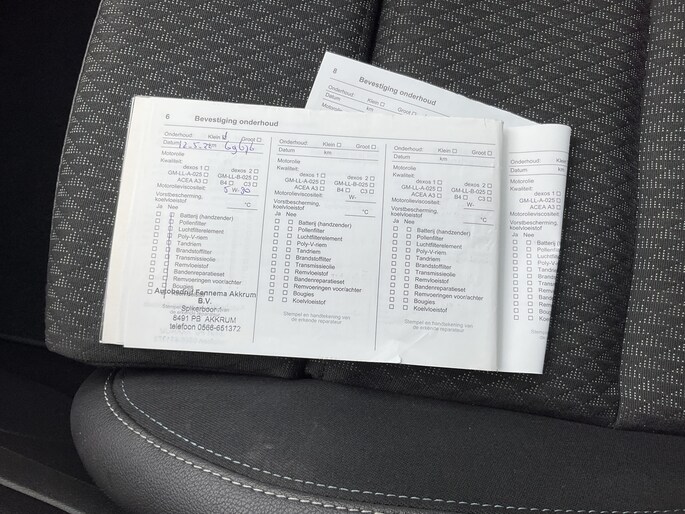 8 Bevestiging onderhoud
Onderhoud: Klein Groot
Datum km
6 Bevestiging onderhoud
Onderhoud: Klein Groot
Datum
Motorolie
Kwaliteit:
dexos 1 dexos 2
GM-LL-A-025 GM-LL-B-025
ACEA A3 B4 C3
Motorolieviscositeit: 5 W-30
Vorstbescherming, koelvloeistof °C
Ja Nee
Batterij (handzender)
Pollenfilter
Luchtfilterelement
Poly-V-riem
Tandriem
Brandstoffilter
Transmissieolie
Remvloeistof
Bandenreparatieset
Remvoeringen voor/achter
Bougies
Autobedrijf Fennema Akkrum
B.V.
Spikerboor
8491 PB AKKRUM
telefoon 0566-651372
Onderhoud: Klein Groot
Datum km
Motorolie
Kwaliteit:
dexos 1 dexos 2
GM-LL-A-025 GM-LL-B-025
ACEA A3 B4 C3
Motorolieviscositeit: W-
Vorstbescherming,
koelvloeistof °C
Ja Nee
Batterij (handzender)
Pollenfilter
Luchtfilterelement
Poly-V-riem
Tandriem
Brandstoffilter
Transmissieolie
Remvloeistof
Bandenreparatieset
Remvoeringen voor/achter
Bougies
Koelvloeistof
Stempel en handtekening van
de erkende reparateur
Onderhoud: Klein Groot
Datum km
Motorolie
Kwaliteit:
dexos 1 dexos 2
GM-LL-A-025 GM-LL-B-025
ACEA A3 B4 C3
Motorolieviscositeit: W-
Vorstbescherming,
koelvloeistof °C
Ja Nee
Batterij (handzender)
Pollenfilter
Luchtfilterelement
Poly-V-riem
Tandriem
Brandstoffilter
Transmissieolie
Remvloeistof
Bandenreparatieset
Remvoeringen voor/achter
Bougies
Koelvloeistof
Stempel en handtekening van
de erkende reparateur